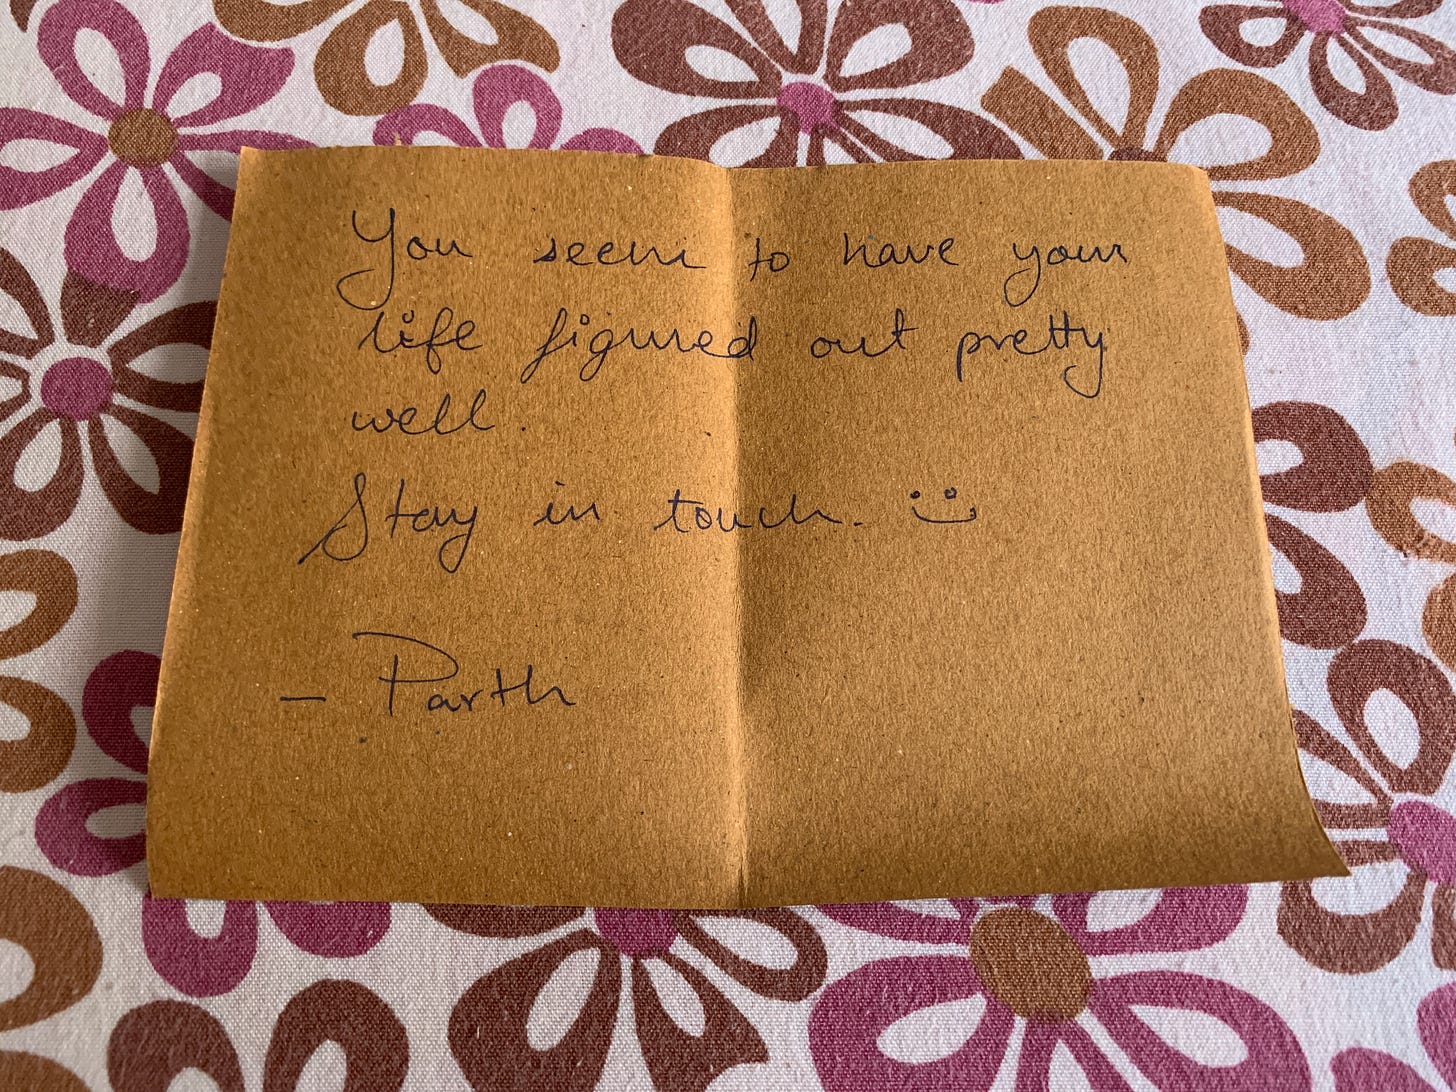 You seem to have your
life figured out pretty
well.
Stay in touch. :)
- Parth